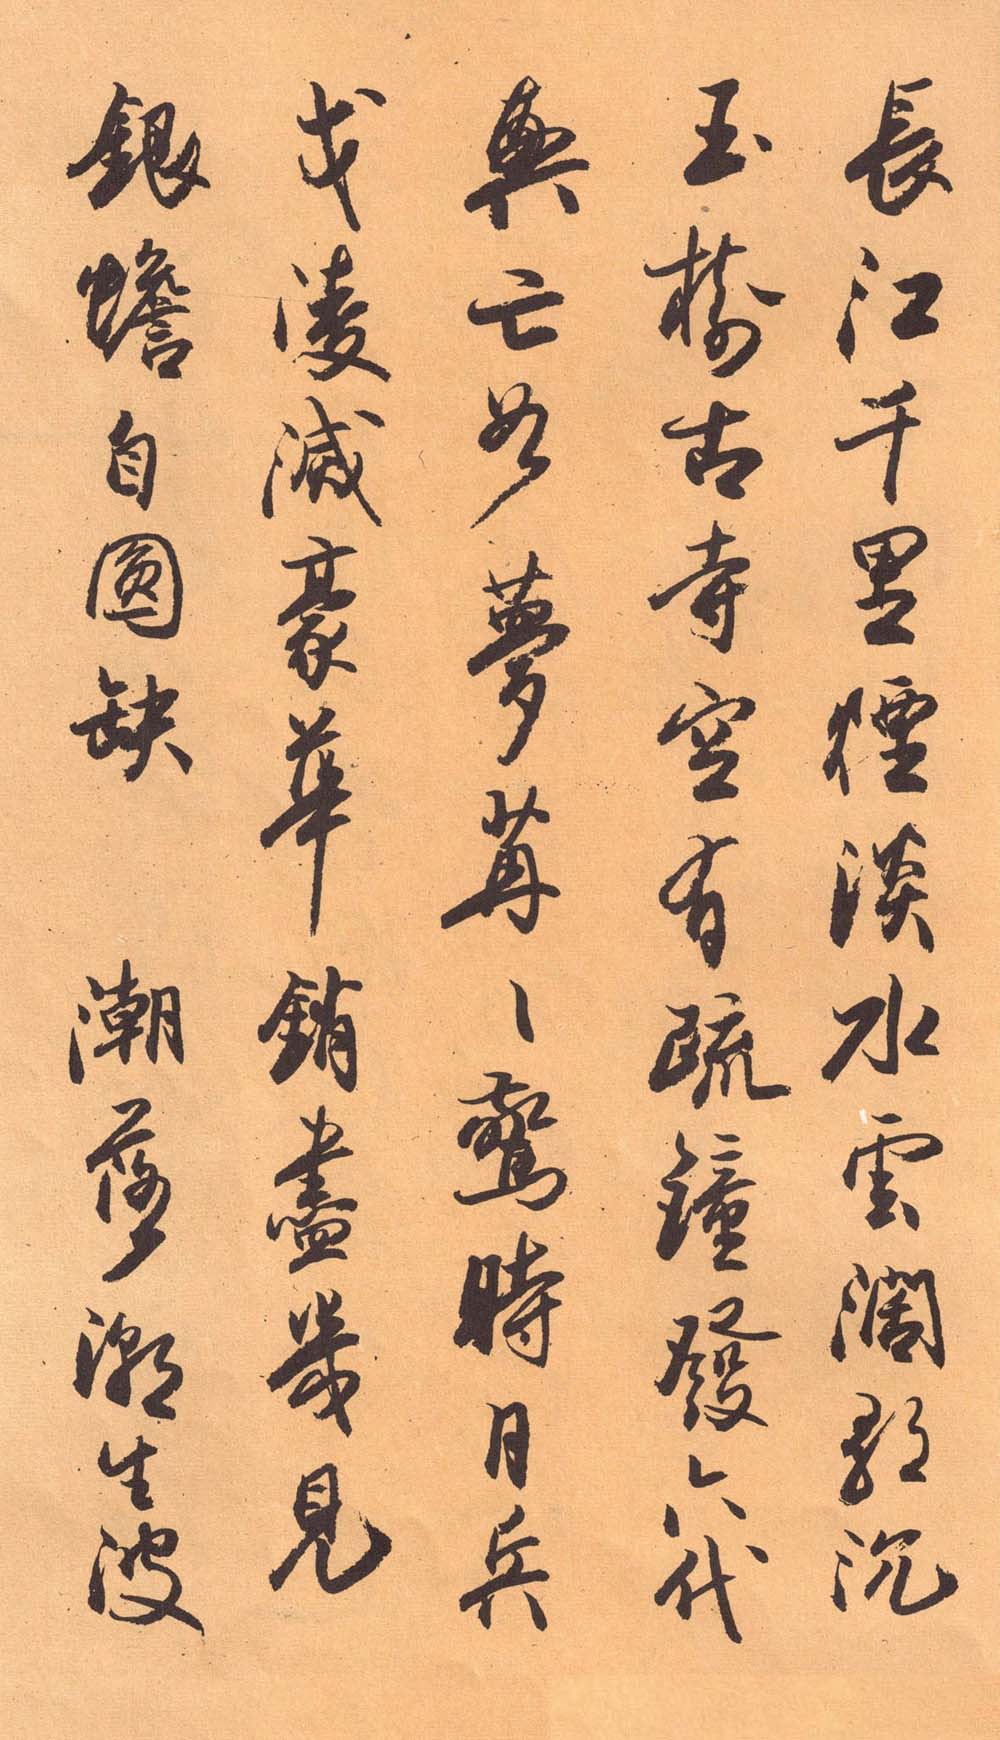 長江千里煙淡水雲闊歌沉
玉樹古寺空有疏鐘發六代
興亡如夢苒〻驚時月兵
戈凌滅豪華銷盡幾見
銀蟾自圓缺 潮落潮生波